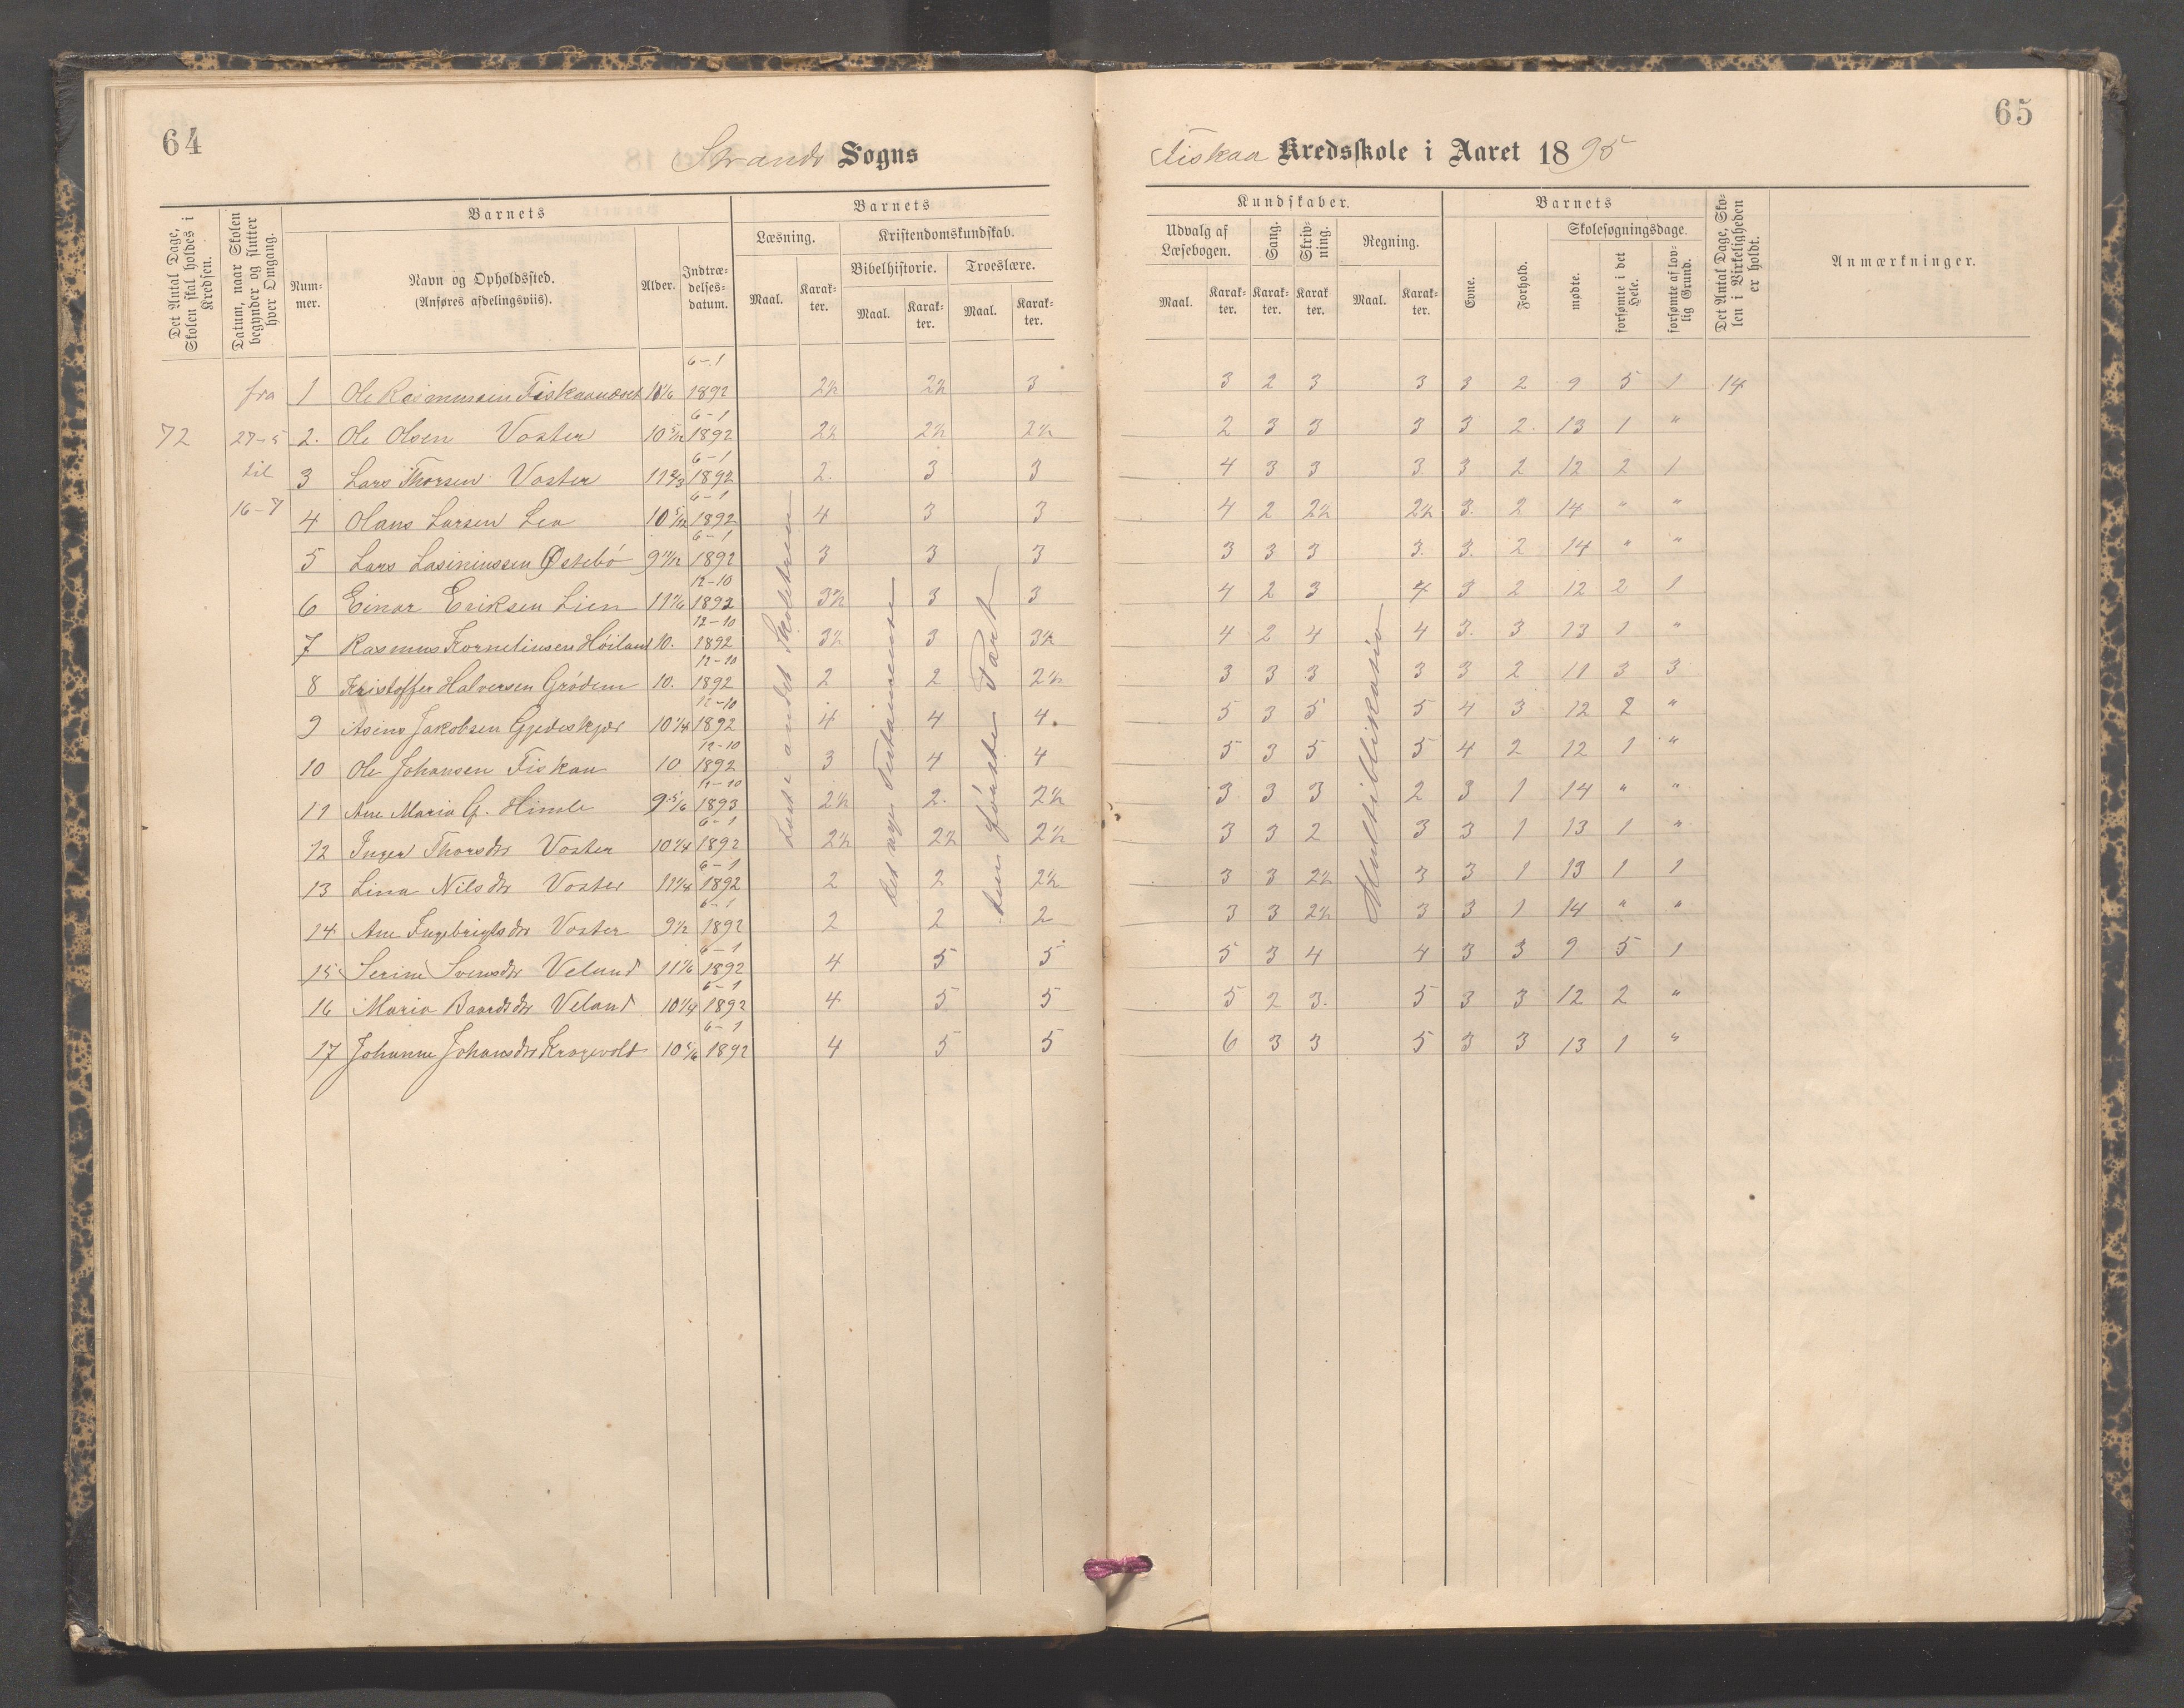 64
Strands Sogns
Det Antal Dage, Skolen skal holdes i Kredsen.
Datum, naar Skolen begynder og slutter hver Omgang.
Barnets
Barnets
Num-
mer.
Navn og Opholdssted.
(Anføres afdelingsviis).
Alder.
Indtræ-
delses-
datum.
Læsning.
Kristendomskundskab.
Bibelhistorie.
Troeslære.
Maal.
Karak-
ter.
Maal.
Karak-
ter.
Maal.
Karak-
ter.
72
fra
27-5
til
16-7
1 Ole Rasmussen Fiskaanæset 11 1/6 6-1 1892 2½ 2½ 3
2. Ole Olsen Voster 10 5/12 6-1 1892 2½ 2½ 2½
3 Lars Thorsen Voster 11 2/3 6-1 1892 2. 3 3
4 Hans Larsen Lea 10 5/12 6-1 1892 4 3 3
5 Lars Lasiniussen Østebö 9 11/12 6-1 1892 3 3 3
6 Einar Eriksen Lien 11 1/6 12-10 1892 3½ 3 3
7 Rasmus Korneliusen Höiland 10. 12-10 1892 3½ 3 3½
8 Kristoffer Halversen Grödem 10. 12-10 1892 2 2 2½
9 Asens Jakobsen Gjedeskjær 10 1/4 12-10 1892 4 4 4.
10 Ole Johansen Fiskaa 10 12-10 1892 3 4 4
11 Ane Maria G. Himle 9 5/6 11-10 1893 2½ 2. 2½
12 Inger Thorsdtr Voster 10 1/4 6-1 1892 2½ 2½ 2½
13 Lina Nilsdtr Voster 11 1/4 6-1 1892 2 2 2½
14 Ane Ingebrigtsdtr Voster 9½ 6-1 1892 2 2 2
15 Serine Svensdtr Veland 11 1/6 6-1 1892 4 5 5
16 Maria Baardsdtr Veland 10 1/4 6-1 1892 4 5 5
17 Johanne Johansdtr Kragevold 10 5/6 6-1 1892 4 5 5
andet Skoletrin
Det nye Testamente
den förste Part
65
Fiskaa Kredsskole i Aaret 1895
Kundskaber.
Barnets
Udvalg af
Læsebogen.
Sang.
Skriv-
ning.
Regning.
Skolesøgningsdage.
Maal.
Karak-
ter.
Karak-
ter.
Karak
ter.
Maal.
Karak-
ter.
Evne.
Forhold.
mødte.
forsømte i det Hele.
forsømte af lov-
lig Grund.
Det Antal Dage, Sko-
len i Virkeligheden
er holdt.
Anmærkninger.
3 2 3 3 3 2 9 5 1 14
2 3 3 3 3 2. 13 1 "
4 3 3 3 3 2 12 2 1
4 2 2½ 2½ 3. 2 14 " "
3 3 3 3. 3. 2 14 " "
4 2 3 4 3 2 12 2 1
4 2 4 4 3. 3 13 1 "
3 3 3 3 3 2 11 3 3
5 3 5 5 4 3 12 2 "
5 3 5 5 4 2 12 1 "
3 3 3 2 3 1 14 " "
3 3 2 3 3 1 13 1 "
3 3 2½ 3 3 1 13 1 1
3 3 2½ 3 3 1 14 " "
5 3 4 4 3 3 9 5 1
5 2 3. 5 3 3 12 2 "
6 3 3 5 3 3 13 1 "
Multiblikasion